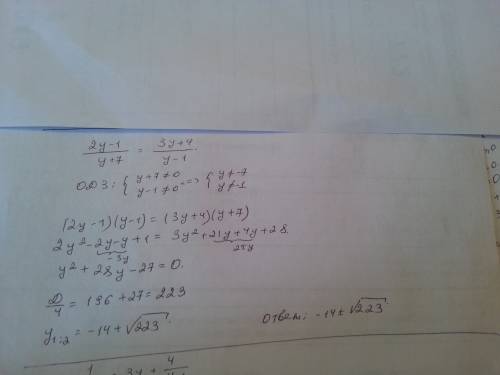 (2y-1)/(y+7) = (3y+4)/(y-1).
ОДЗ: { y+7≠0 y-1≠0 => { y≠-7 y≠1
(2y-1)(y-1) = (3y+4)(y+7)
2y²-2y-y+1 = 3y²+21y+4y+28.
-3y 25y
y²+28y-27=0.
D/4 = 196+27=223
y1;2 = -14±√223.
Ответ: -14±√223.
1 = 3y + 4